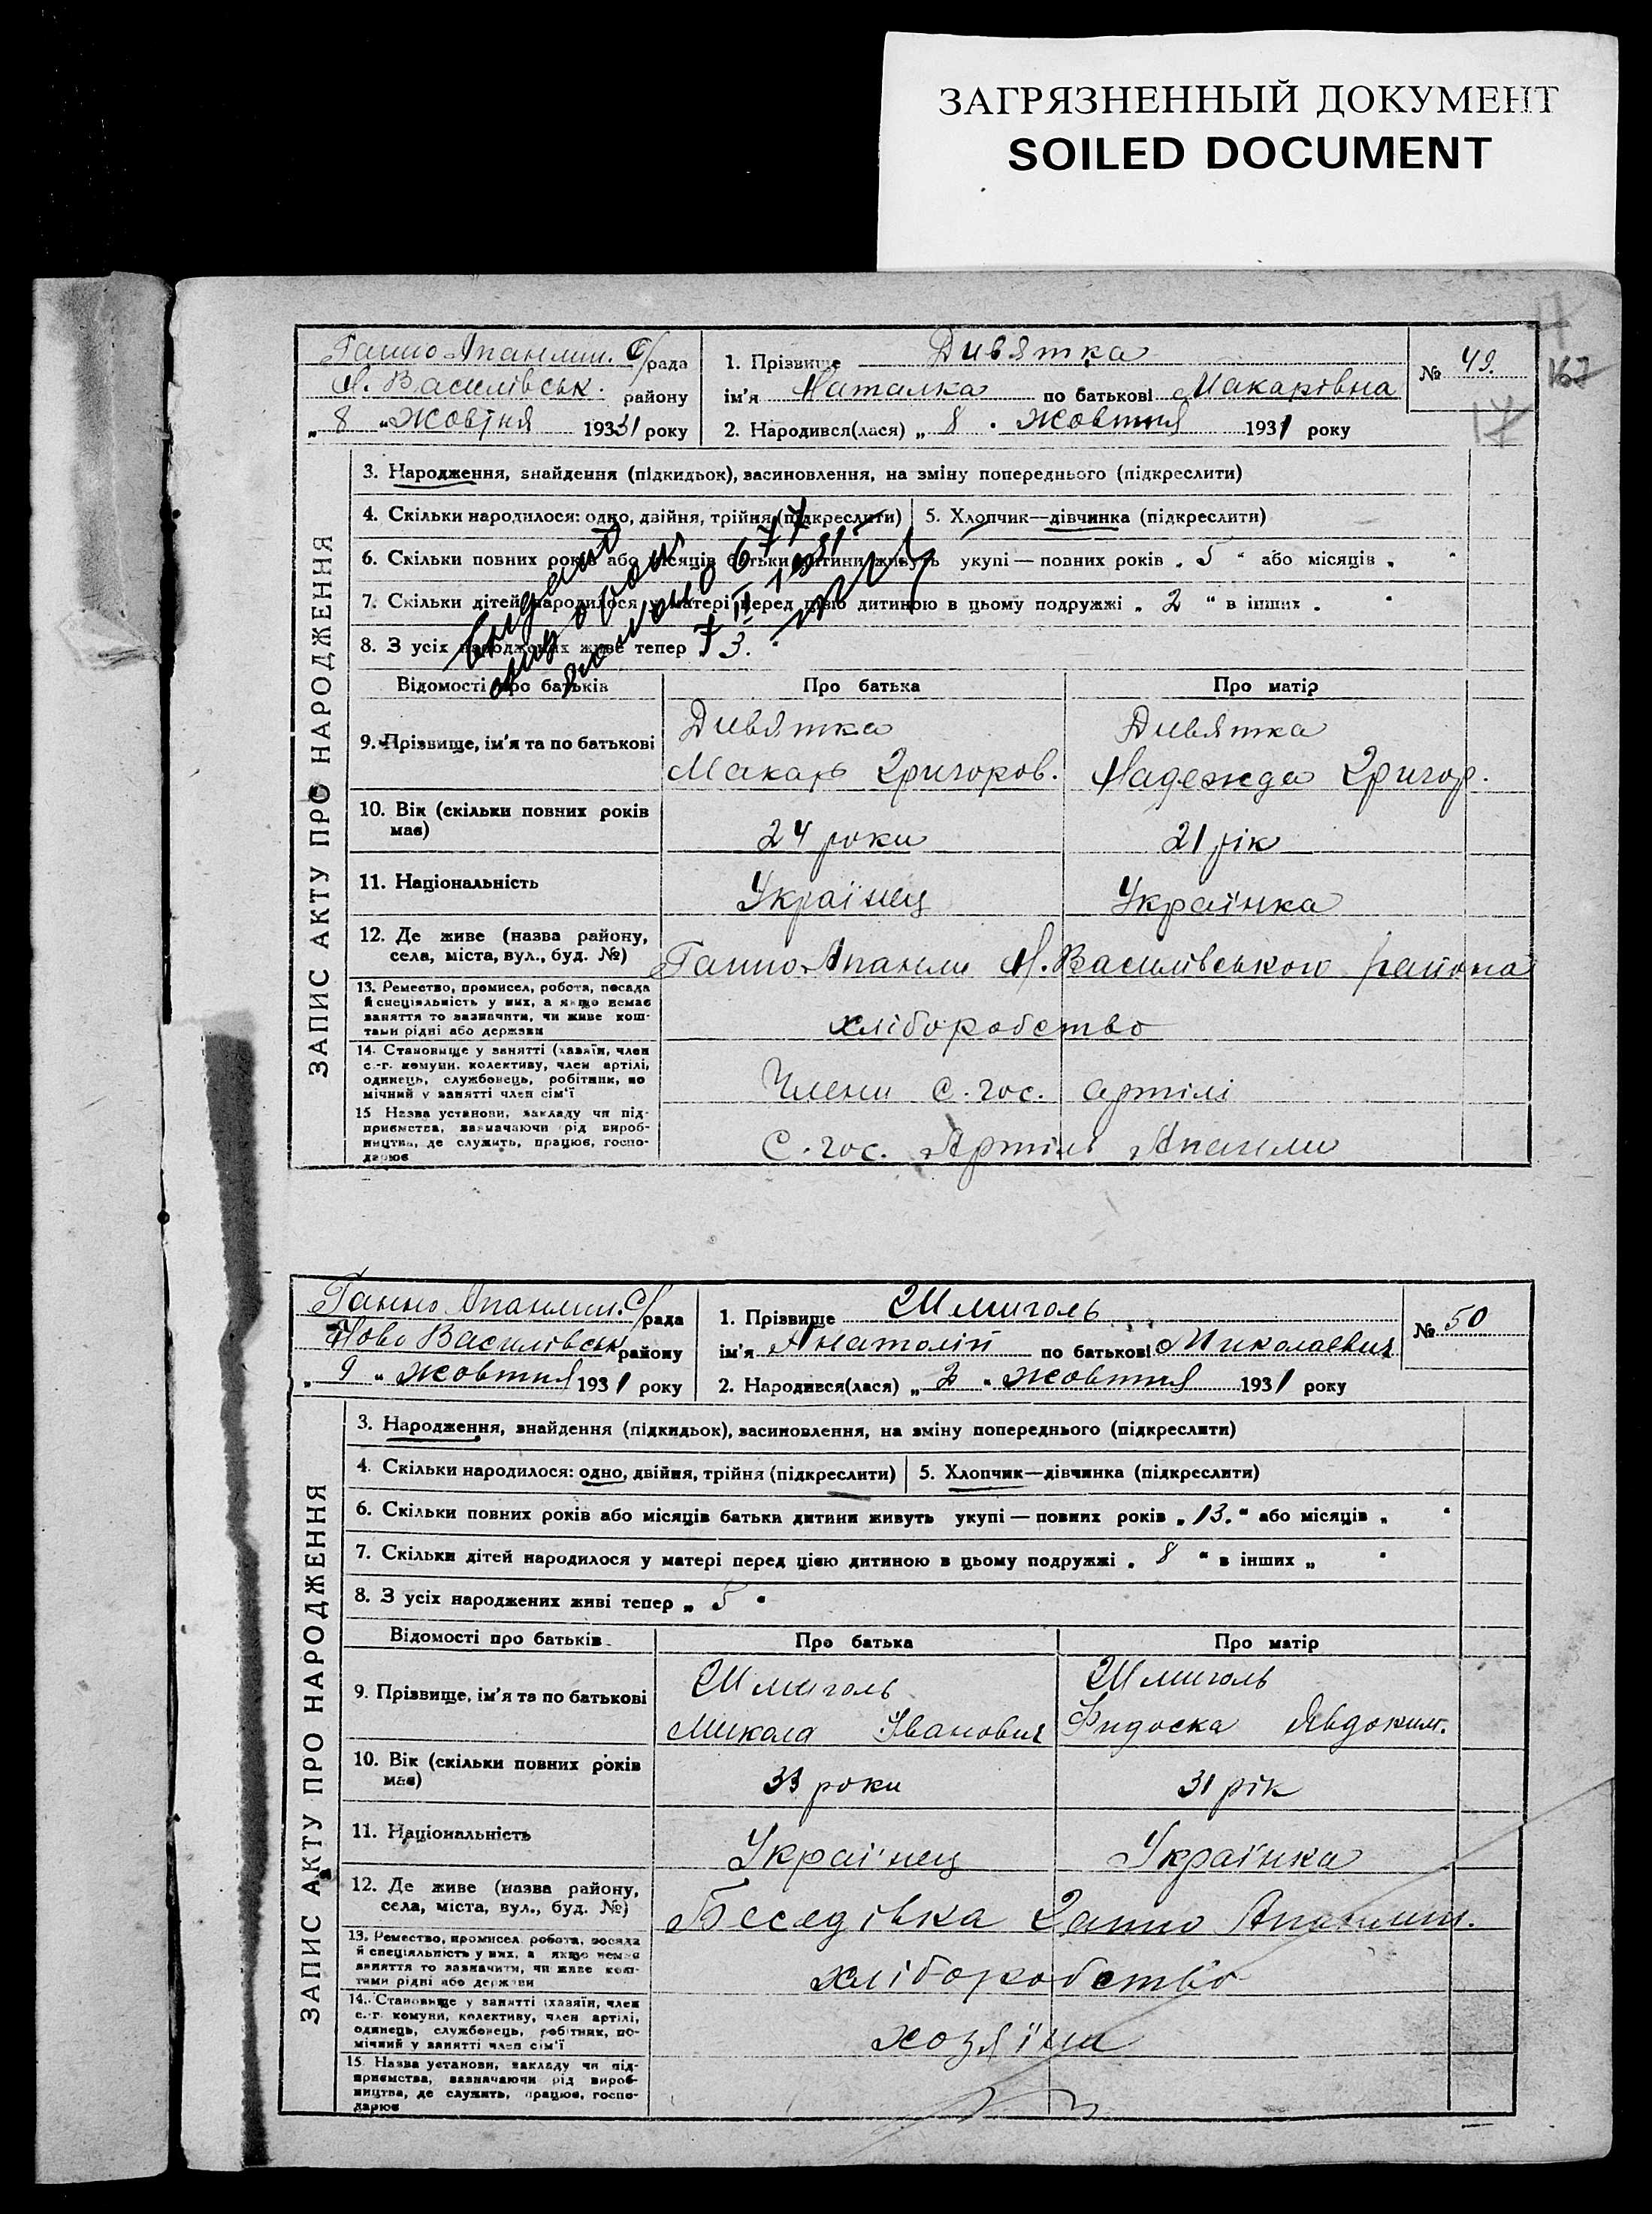 ЗАГРЯЗНЕННЫЙ ДОКУМЕНТ
SOILED DOCUMENT
17
167
17
Ганно Апанлин. С/рада
Н. Василівськ. району
„ 8 “ Жовтня 1931 року
1. Прізвище Дивятка
ім'я Наталка по батькові Макарівна
2. Народився(лася) „ 8 “ Жовтня 1931 року
№ 49.
ЗАПИС АКТУ ПРО НАРОДЖЕННЯ
3. Народження, знайдення (підкидьок), васиновлення, на зміну попереднього (підкреслити)
4. Скільки народилося: одно, двійня, трійня (підкреслити)
5. Хлопчик—дівчинка (підкреслити)
6. Скільки повних років або місяців батьки дитини живуть укупі — повних років „ 5 “ або місяців „ “
7. Скільки дітей народилося у матері перед цією дитиною в цьому подружжі „ 2 “ в інших „ “
8. З усіх народжених живе тепер „ 3. “
Відомості про батьків
Про батька
Про матір
9. Прізвище, ім'я та по батькові
Дивятка
Макарь Григоров.
Дивятка
Надежда Григор.
10. Вік (скільки повних років має)
24 роки
21 рік
11. Національність
Українец
Українка
12. Де живе (назва району, села, міста, вул., буд. №)
Ганно-Апанли Н. Василівського района
13. Ремество, промисел, робота, посада й спеціяльність у них, а якщо немає заняття то зазначити, чи живе коштами рідні або держави
хліборобство
14. Становище у занятті (хазяїн, член с.-г. комуни, колективу, член артілі, одинець, службовець, робітник, помічний у занятті член сім'ї
Члени с. гос. артілі
15 Назва установи, закладу чи підприємства, зазначаючи рід виробництва, де служить, працює, господарює
С. гос. Артіль Апанли
видано
677
7 II 1951
Ганно Апанлин. С/рада
Ново Василівськ району
„ 9 “ Жовтня 1931 року
1. Прізвище Шмиголь
ім'я Анатолій по батькові Миколаевич
2. Народився(лася) „ 2 “ Жовтня 1931 року
№ 50
ЗАПИС АКТУ ПРО НАРОДЖЕННЯ
3. Народження, знайдення (підкидьок), васиновлення, на зміну попереднього (підкреслити)
4. Скільки народилося: одно, двійня, трійня (підкреслити)
5. Хлопчик—дівчинка (підкреслити)
6. Скільки повних років або місяців батьки дитини живуть укупі — повних років „ 13. “ або місяців „ “
7. Скільки дітей народилося у матері перед цією дитиною в цьому подружжі „ 8 “ в інших „ “
8. З усіх народжених живі тепер „ 5 “
Відомості про батьків
Про батька
Про матір
9. Прізвище, ім'я та по батькові
Шмиголь
Микола Іванович
Шмиголь
Фидоска Явдоким.
10. Вік (скільки повних років має)
33 роки
31 рік
11. Національність
Українец
Українка
12. Де живе (назва району, села, міста, вул., буд. №)
Беседівка Ганно Апанлин.
13. Ремество, промисел, робота, посада й спеціяльність у них, а якщо немає заняття то зазначити, чи живе коштами рідні або держави
хліборобство
14. Становище у занятті (хазяїн, член с.-г. комуни, колективу, член артілі, одинець, службовець, робітник, помічний у занятті член сім'ї
хозяїни
15. Назва установи, закладу чи підприємства, зазначаючи рід виробництва, де служить, працює, господарює